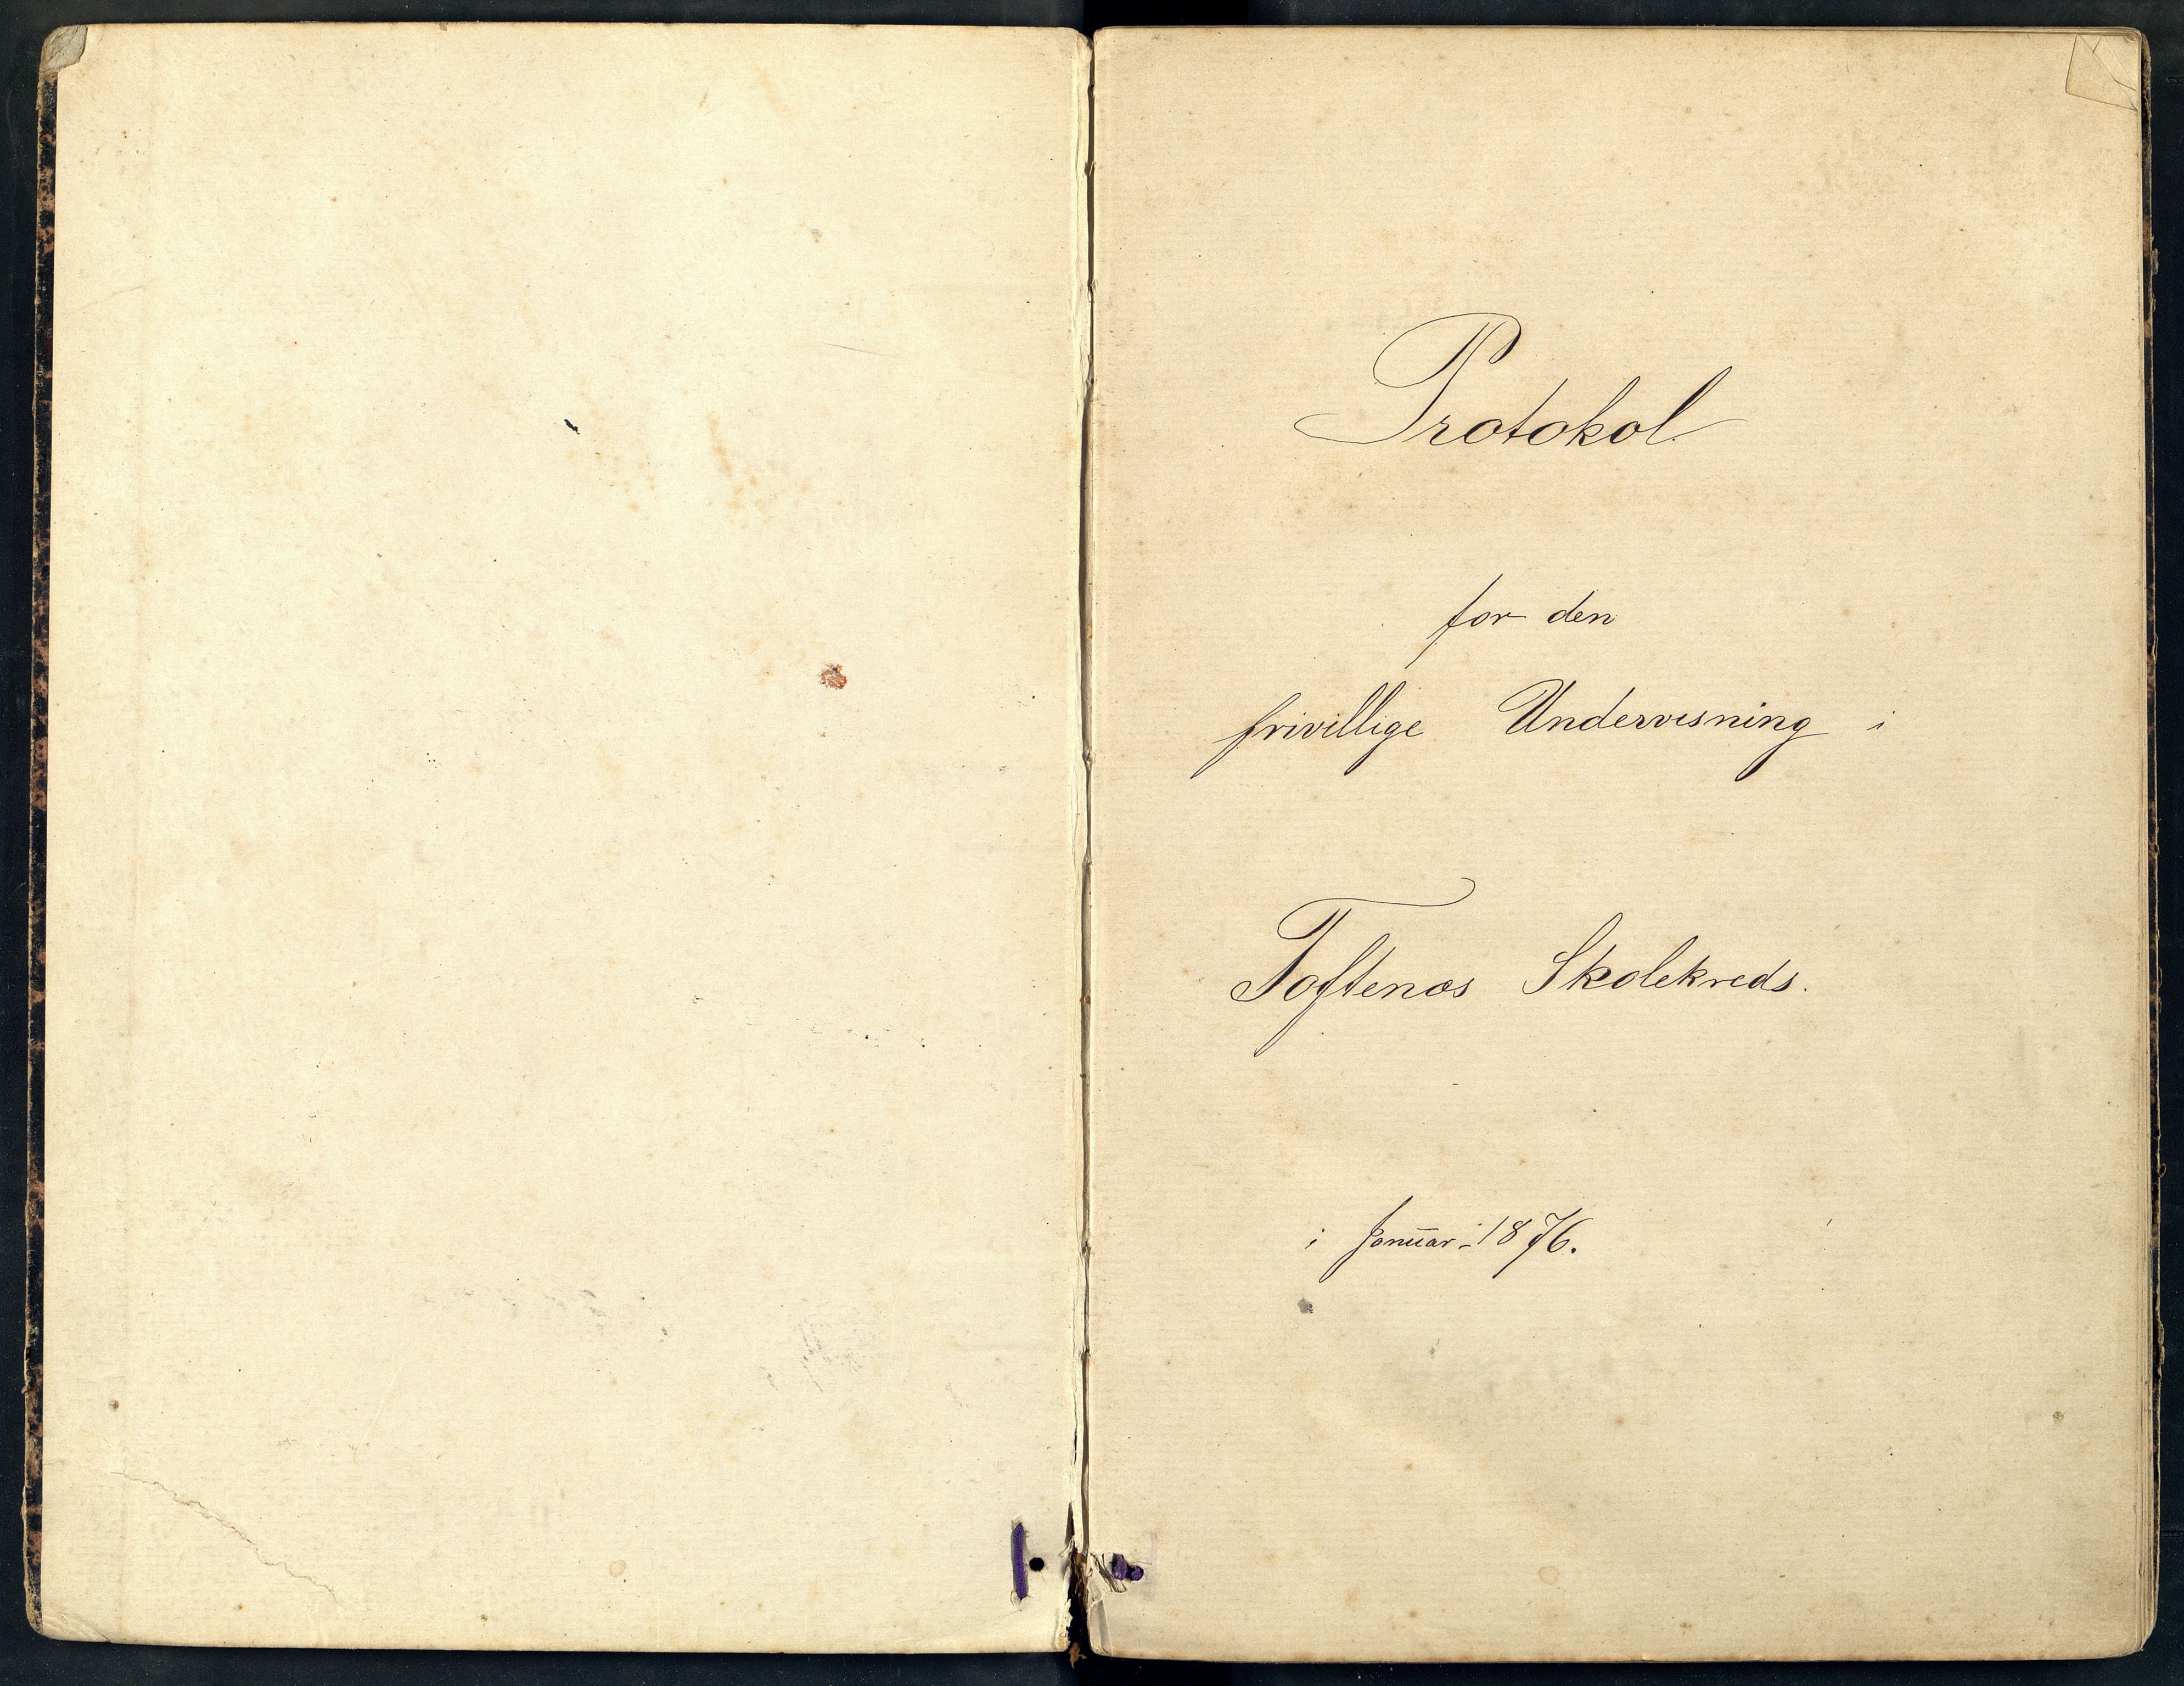 Protokol
for den
frivillige Undervisning i
Toftenæs Skolekreds.
i Januar 1876.